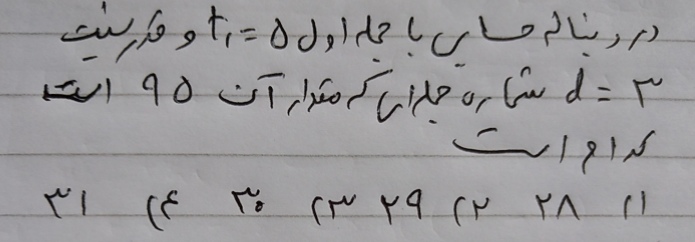 در دنباله حسابی با جمله اول t₁=۵ و قدرنسبت
d=۳ شماره جمله‌ای که مقدار آن ۹۵ است
کدام است
۱) ۲۸ ۲) ۲۹ ۳) ۳۰ ۴) ۳۱